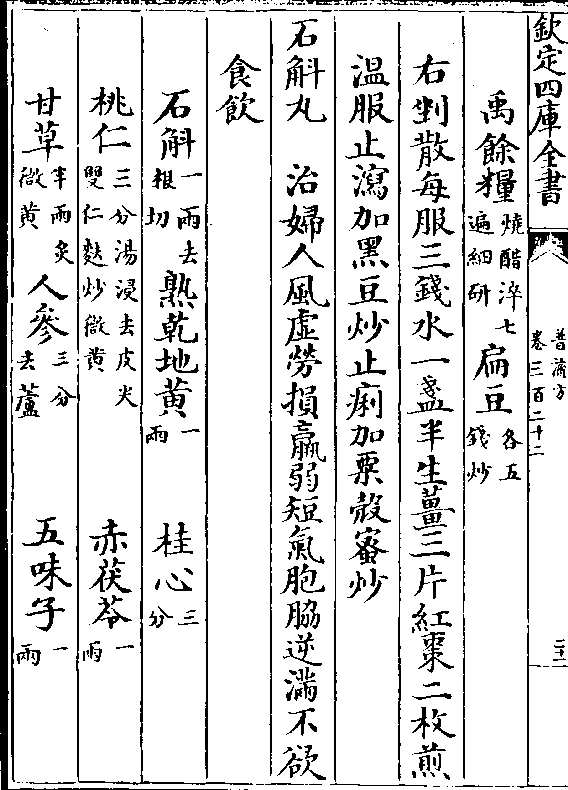 欽定四庫全書
普濟方
卷三百二十二
禹餘糧燒醋淬七遍細研 扁豆各五錢炒
右剉散每服三錢水一盞半生薑三片紅棗二枚煎
溫服止瀉加黑豆炒止痢加粟殼蜜炒
石斛丸 治婦人風虛勞損羸弱短氣胞脇逆滿不欲
食飲
石斛一兩去根切 熟乾地黄一兩 桂心三分
桃仁三分湯浸去皮尖雙仁麩炒微黄 赤茯苓一兩
甘草半兩炙微黄 人參三分去蘆 五味子一兩